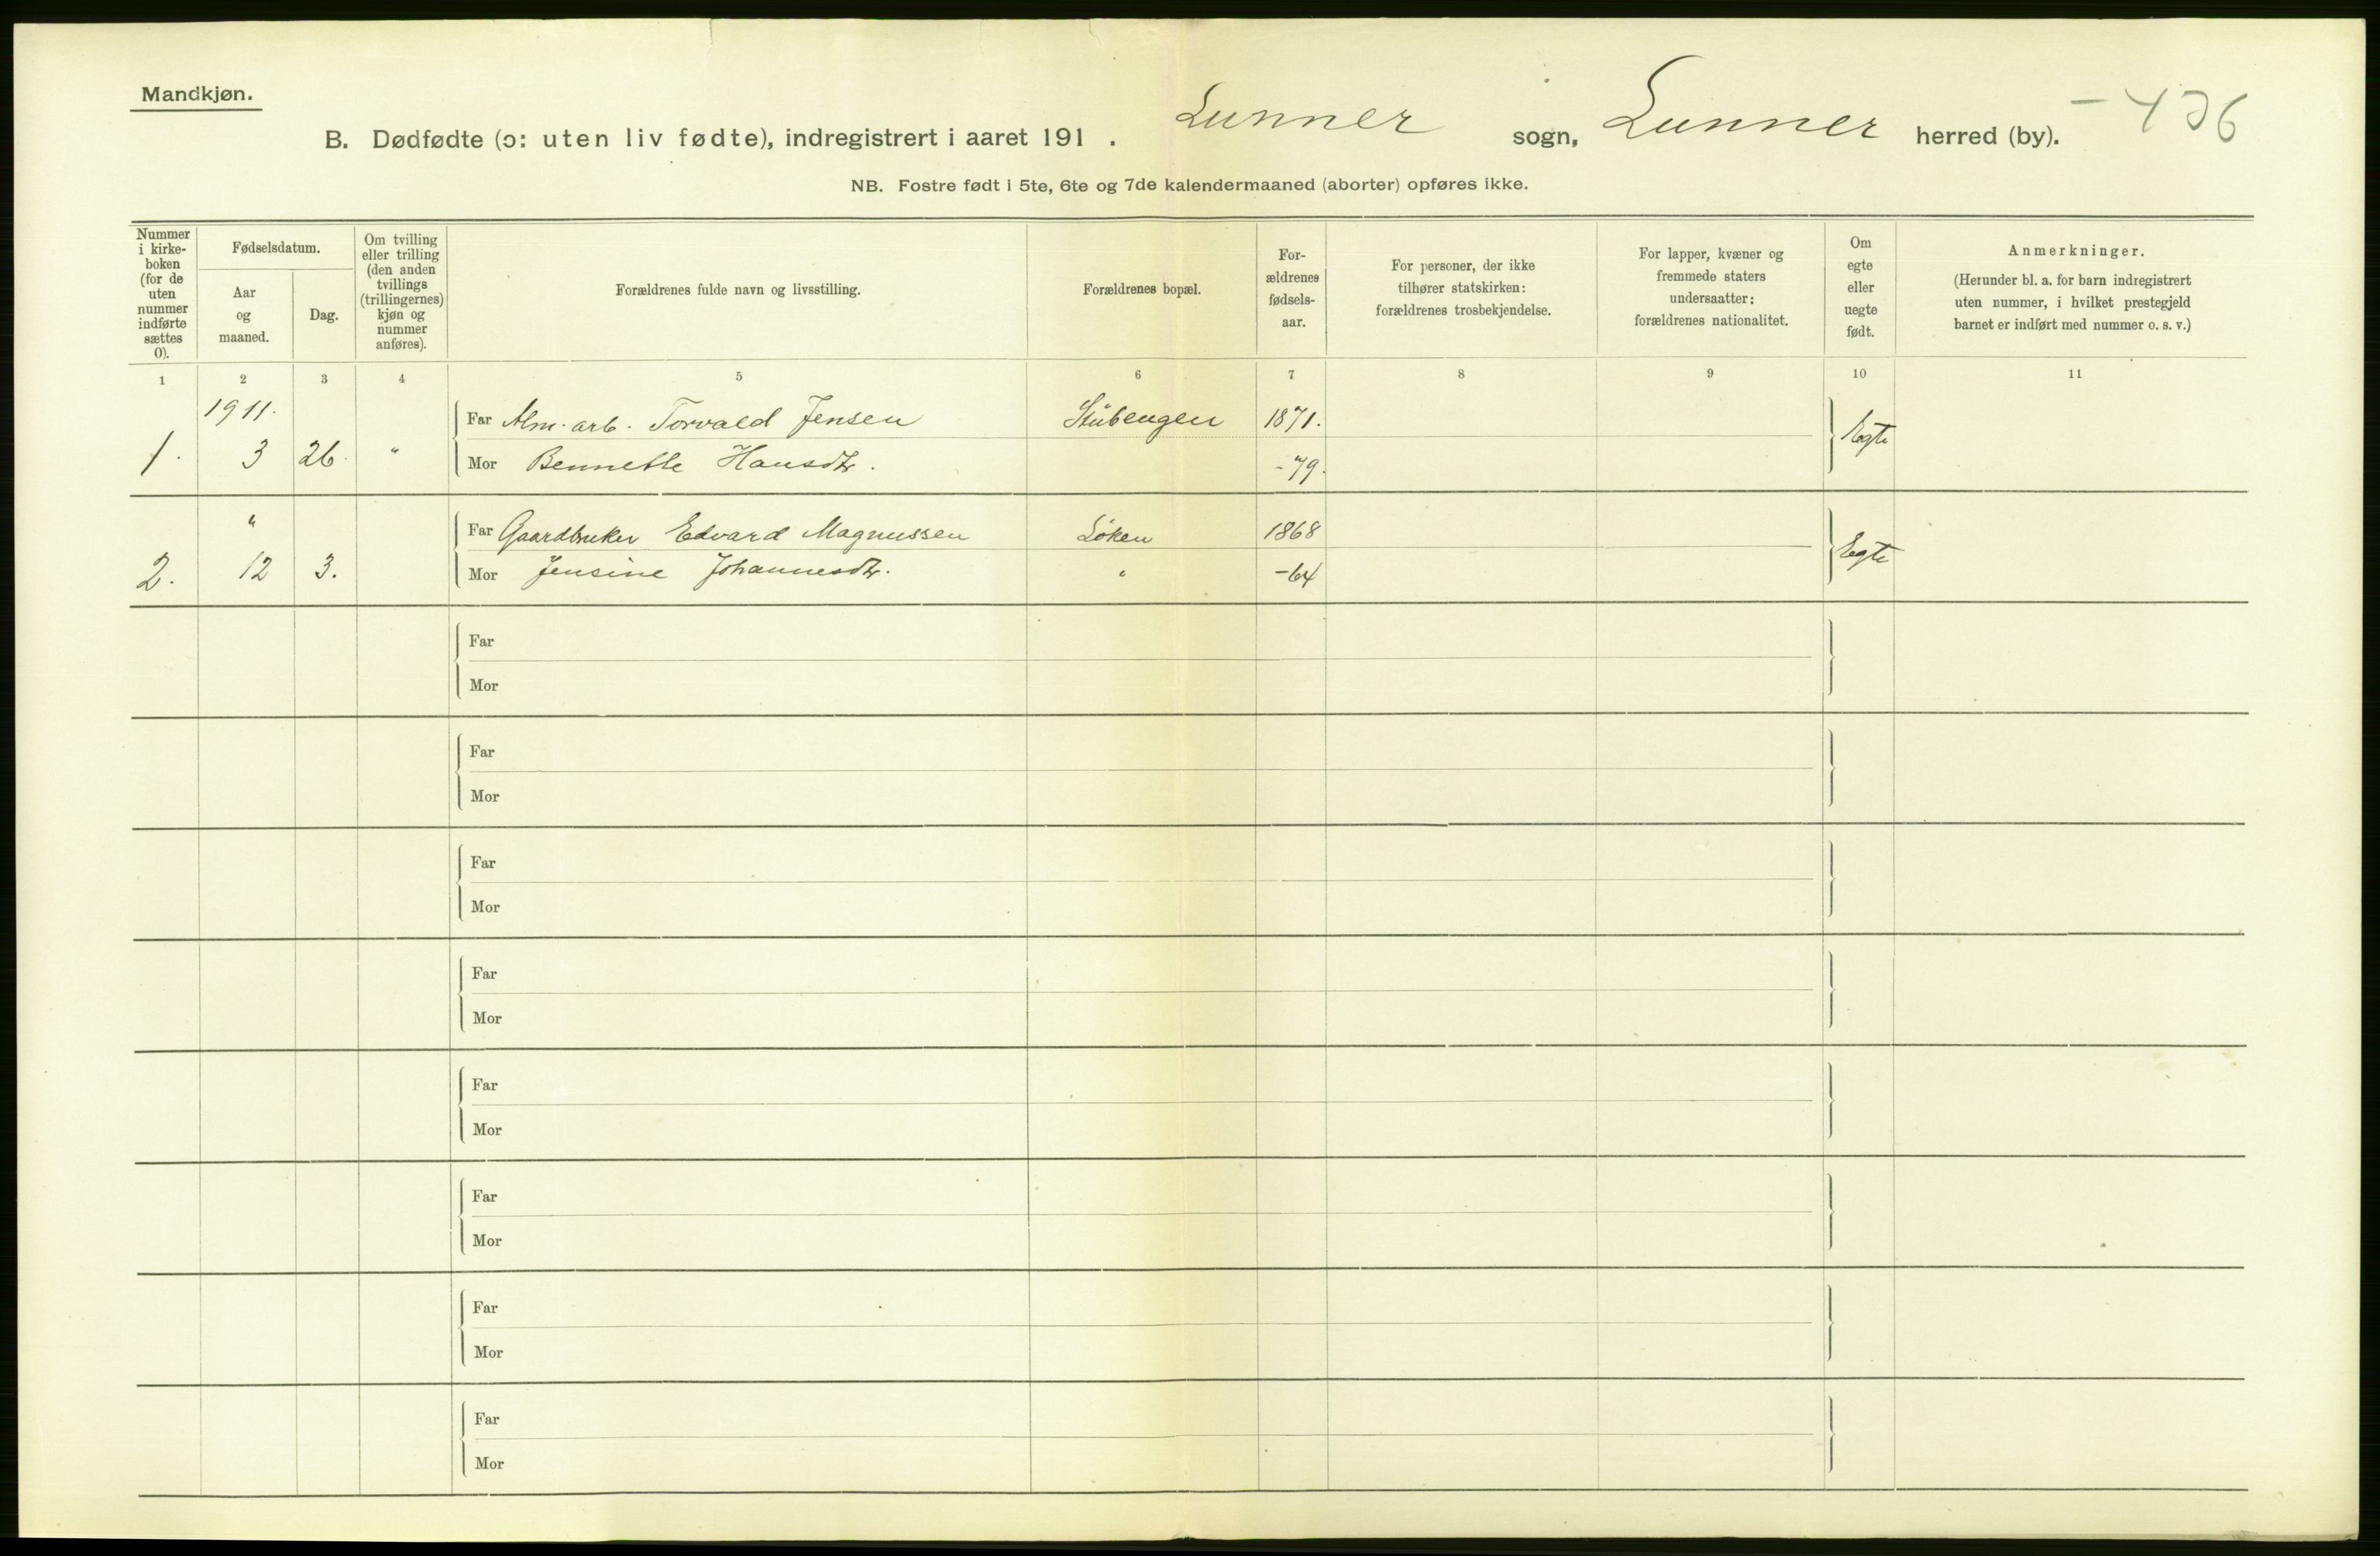 Mandkjøn.
B. Dødfødte (ɔ: uten liv fødte), indregistrert i aaret 191 . Lunner sogn, Lunner herred (by). - 436
NB. Fostre født i 5te, 6te og 7de kalendermaaned (aborter) opføres ikke.
Nummer
i kirke-
boken
(for de
uten
nummer
indførte
sættes
0).
Fødselsdatum.
Aar
og
maaned.
Dag.
Om tvilling
eller trilling
(den anden
tvillings
(trillingernes)
kjøn og
nummer
anføres).
Forældrenes fulde navn og livsstilling.
Forældrenes bopæl.
For-
ældrenes
fødsels-
aar.
For personer, der ikke
tilhører statskirken:
forældrenes trosbekjendelse.
For lapper, kvæner og
fremmede staters
undersaatter:
forældrenes nationalitet.
Om
egte
eller
uegte
født.
Anmerkninger.
(Herunder bl. a. for barn indregistrert
uten nummer, i hvilket prestegjeld
barnet er indført med nummer o. s. v.)
1 2 3 4 5 6 7 8 9 10 11
1911.
Far Alm. arb. Torvald Jensen Stubengen 1871. Egte
1. 3 26. " Mor Bennette Hansdtr. - 79.
" Far Gaardbruker Edvard Magnussen Løken 1868 Egte
2. 12 3. Mor Jensine Johannesdtr. " - 64
Far
Mor
Far
Mor
Far
Mor
Far
Mor
Far
Mor
Far
Mor
Far
Mor
Far
Mor